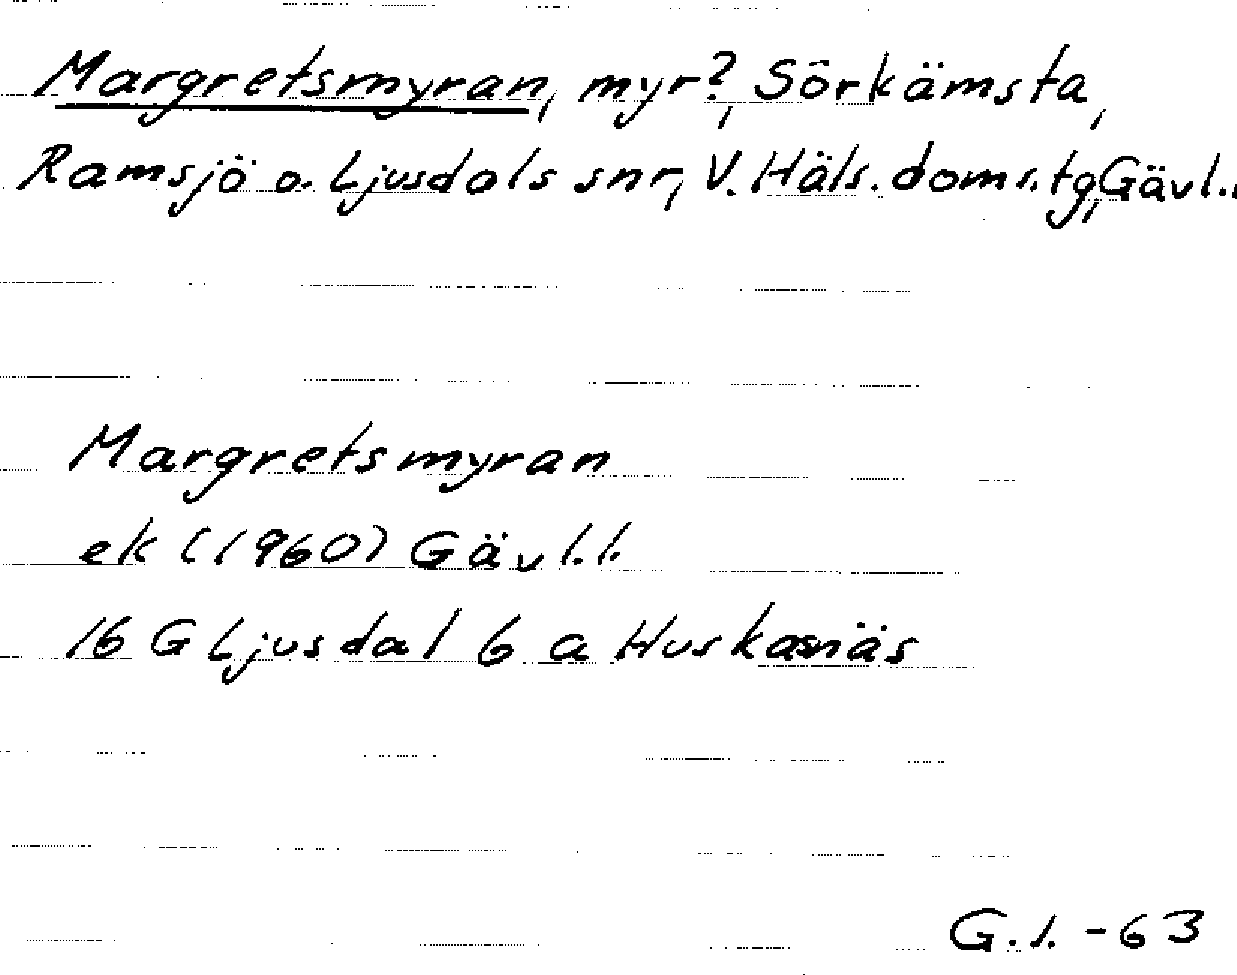 Margretsmyran, myr?, Sörkämsta,
Ramsjö o. Ljusdals snr, V. Häls. doms.tg, Gävl..
Margretsmyran
ek (1960) Gävl.l.
16 G Ljusdal 6 a Huskasnäs
G.l. -63